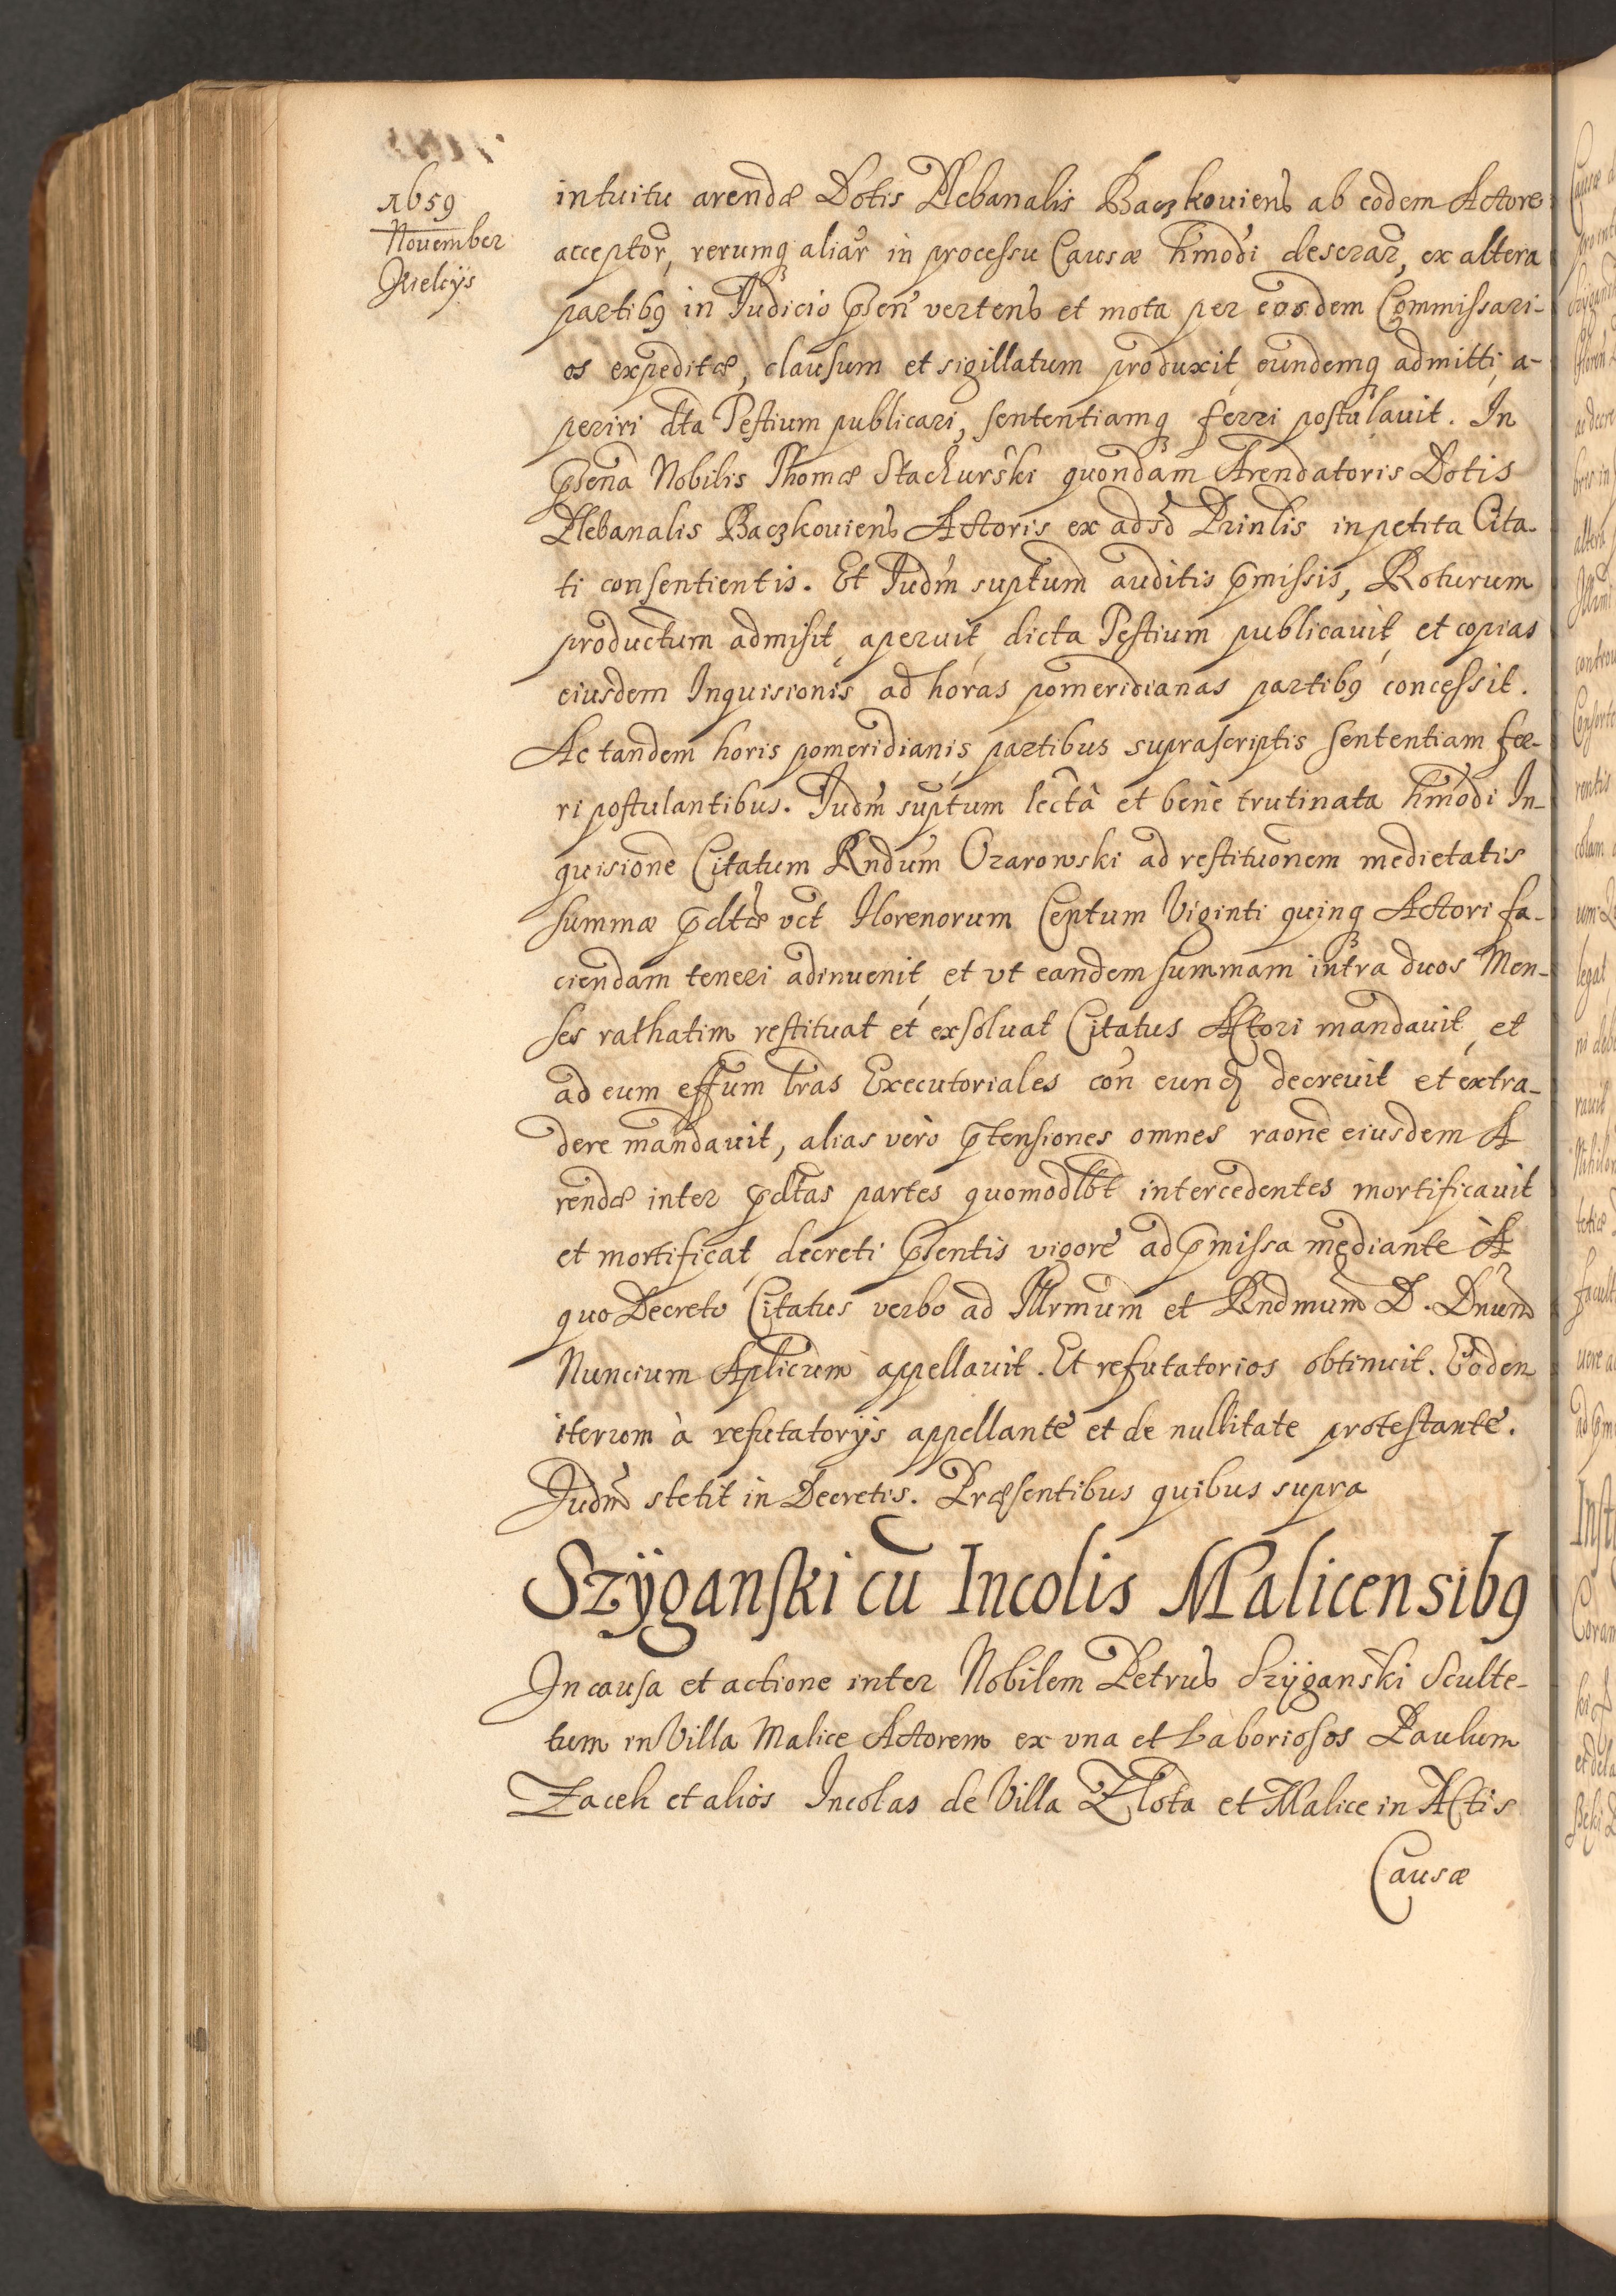 1659
November
Kielcÿs
intuitu arendæ Dotis Plebanalis Baczkouiens ab eodem Actore
acceptor̃, rerumq aliar̃ in processu Causæ hm̃odi descrar̃, ex altera
partibꝯ in Iudicio p̃sen̄ vertens et mota per eosdem Commissari-
os expeditæ, clausum et sigillatum produxit, eundemq admitti, a-
periri dt̃a Testium publicari, sententiamq ferri postulauit. In
p̃sen̄a Nobilis Thomæ Stachurski quondam Arendatoris Dotis
Plebanalis Baczkouiens Actoris ex ads̃o Prin̄lis in petita Cita-
ti consentientis. Et Iudm̃ supt̃um auditis p̃missis, Roturum
productum admisit, aperuit, dicta Testium publicauit, et copias
eiusdem Inquisionis ad horas pomeridianas partibꝯ concessit.
Ac tandem horis pomeridianis partibus suprascriptis sententiam fer-
ri postulantibus. Iudm̃ supt̃um lectâ et benè trutinata hm̃odi In-
quisione Citatum Rndum Ozarowski ad restituonem medietatis
summæ p̃dt̃æ vc̃t Florenorum Centum Viginti quinq Actori fa-
ciendam teneri adinuenit, et vt eandem summam intra duos Men-
ses rathatim restituat et exsoluat Citatus Actori mandauit, et
ad eum eff̃um lr̃as Executoriales con̄ eunđ decreuit et extra-
dere mandauit, alias verò p̃tensiones omnes rao̅ne eiusdem A
rendæ inter p̃dt̃as partes quomodlbt̃ intercedentes mortificauit
et mortificat, decreti p̃sentis vigore ad p̃missa mediante A
quo Decreto Citatus verbo ad Illrmum et Rndmum D. Dnum
Nuncium Aplicum appellauit. Et refutatorios obtinuit. Eodem
iterum à refutatorÿs appellante et de nullitate protestante.
Iudm̃ stetit in Decretis. Præsentibus quibus supra
Szÿganski cū Incolis Malicensibꝯ
In causa et actione inter Nobilem Petrus Szÿganski Sculte-
tum in Villa Malice Actorem ex vna et Laboriosos Paulum
Zacek et alios Incolas de Villa Zlota et Malice in Actis
Causæ